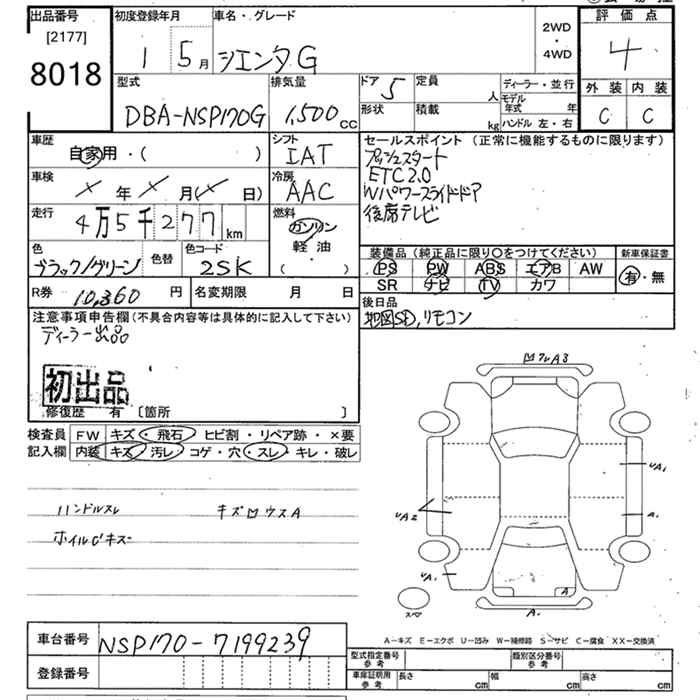 出品番号
[2177]
8018
初度登録年月
1 5月
車名・グレード
シエンタ G
2WD
・
4WD
評価点
4
外装 内装
C C
型式
DBA-NSP170G
排気量
1,500cc
ドア 5
定員 人
形状
積載 kg
ディーラー・並行
モデル年式 年
ハンドル 左・右
車歴
自家用・( )
シフト
IAT
車検
× 年 × 月(× 日)
冷房
AAC
走行
4万5千277km
燃料
ガソリン
軽油
( )
色
ブラック/グリーン
色替
色コード
2SK
R券 10,360 円
名変期限 月 日
セールスポイント (正常に機能するものに限ります)
プッシュスタート
ETC2.0
Wパワースライドドア
後席テレビ
装備品(純正品に限り○をつけてください)
PS PW ABS エアB AW
SR ナビ TV カワ
新車保証書
有・無
後日品
地図SD,リモコン
注意事項申告欄(不具合内容等は具体的に記入して下さい)
ディーラー出品
初出品
修復歴 有 〔箇所 〕
検査員
記入欄
FW キズ・飛石・ヒビ割・リペア跡・×要
内装 キズ・汚レ・コゲ・穴・スレ・キレ・破レ
ハンドルスレ
キズ凹ウスA
ホイルCキズ
A3
A1
A2
A1
A1
A1
スペ
A-キズ E-エクボ U-凹み W-補修跡 S-サビ C-腐食 XX-交換済
車台番号
NSP170-7199239
登録番号
型式指定番号
参考
類別区分番号
参考
車庫証明用
参考
長さ cm 幅 cm 高さ cm